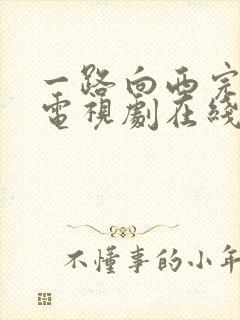 一路向西完
電視劇在綫
不懂事的小年